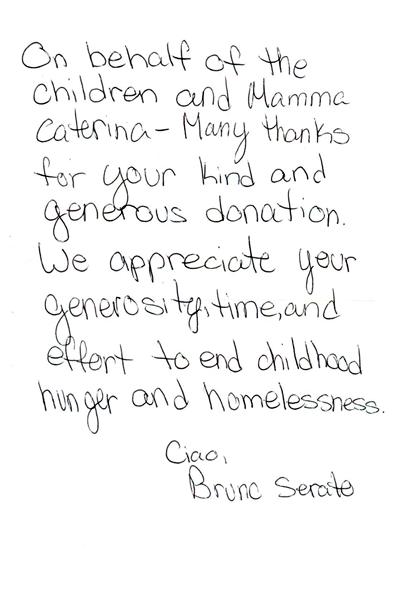 On behalf of the
children and Mamma
Caterina - Many thanks
for your kind and
generous donation.
We appreciate your
generosity, time, and
effort to end childhood
hunger and homelessness.
Ciao,
Bruno Serato